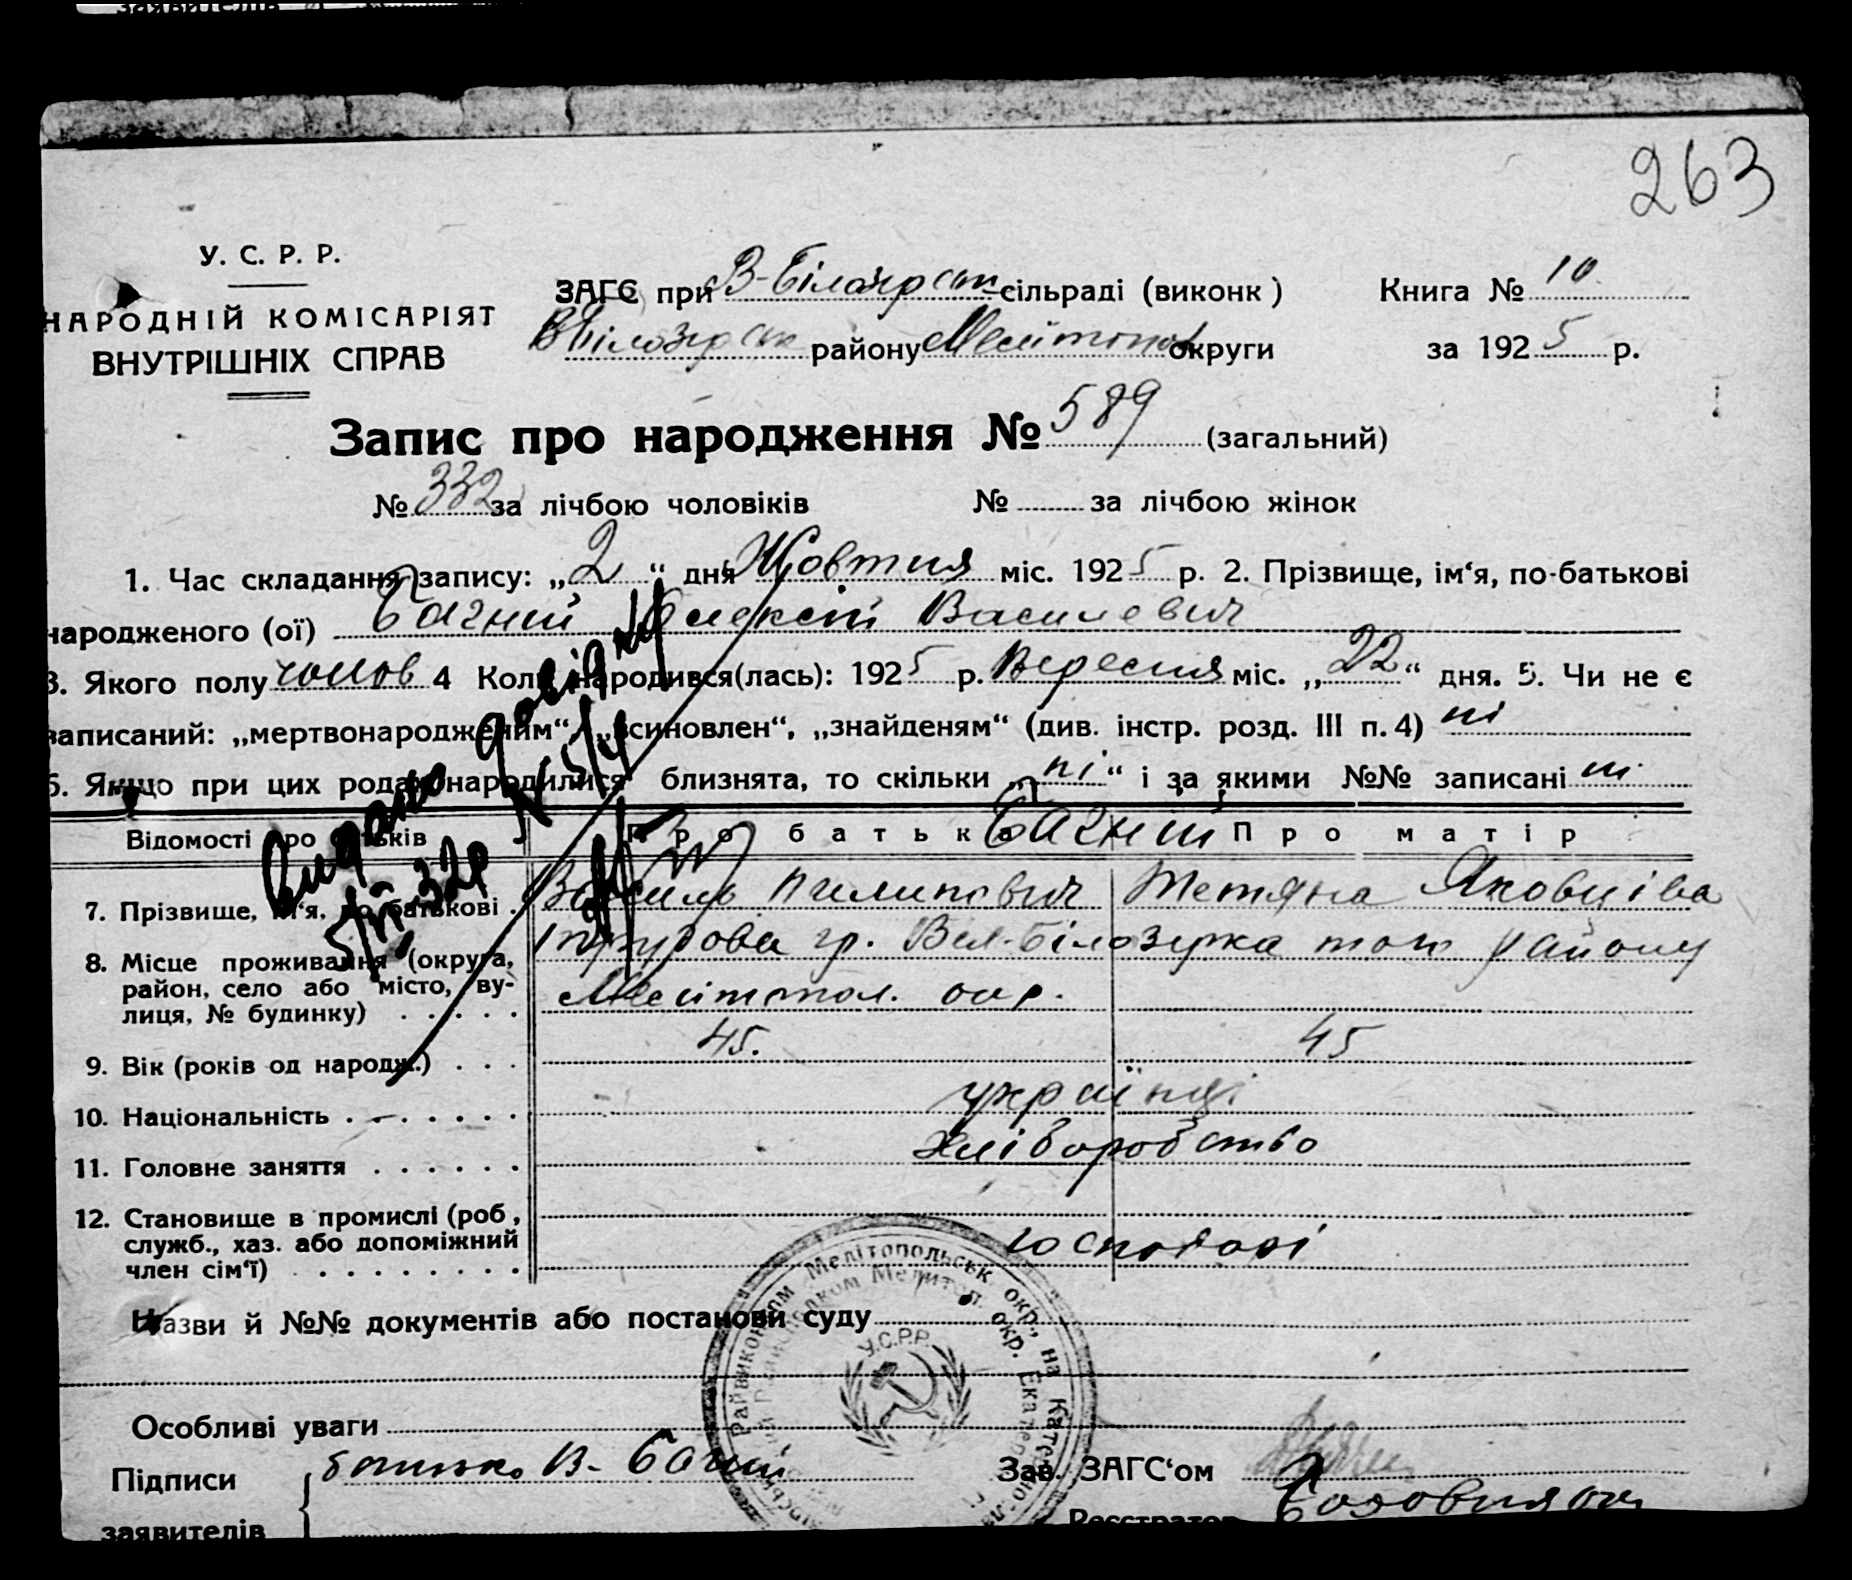 263
У. С. Р. Р.
НАРОДНІЙ КОМІСАРІЯТ
ВНУТРІШНІХ СПРАВ
ЗАГС при В-Білозірськ сільраді (виконк)
ВБілозірськ району Мелітопол округи
Книга № 10
за 1925 р.
Запис про народження № 589 (загальний)
№ 332 за лічбою чоловіків № за лічбою жінок
1. Час складання запису: „2“ дня Жовтня міс. 1925 р. 2. Прізвище, ім‘я, по-батькові
народженого (ої) Багний Олексій Василевич
3. Якого полу чолов 4 Коли народився(лась): 1925 р. Вересня міс. „22“ дня. 5. Чи не є
записаний: „мертвонародженим“, „всиновлен“, „знайденям“ (див. інстр. розд. III п. 4) ні
6. Якщо при цих родах народилися близнята, то скільки „ні“ і за якими №№ записані ні
Видано довідку
№ 5/4
5/VI-32р
Відомості про батьків Про батька Багний Про матір
7. Прізвище, ім‘я, по батькові Василь Пилипович Тетяна Яковлівна
8. Місце проживання (округа, район, село або місто, вулиця, № будинку) гр. Вел-Білозірка того району
Мелітопол. окр.
9. Вік (років од народж.) 45. 45
10. Національність українці
11. Головне заняття хліборобство
12. Становище в промислі (роб, служб., хаз. або допоміжний член сім‘ї) господарі
Назви й №№ документів або постанови суду
Райвиконком Мелітопольськ. окр., на Катерино
Мелитоп. окр. Екатерино
У.С.Р.Р.
Особливі уваги
Підписи батько В. Багний
заявителів
Зав. ЗАГС‘ом
Реєстратор